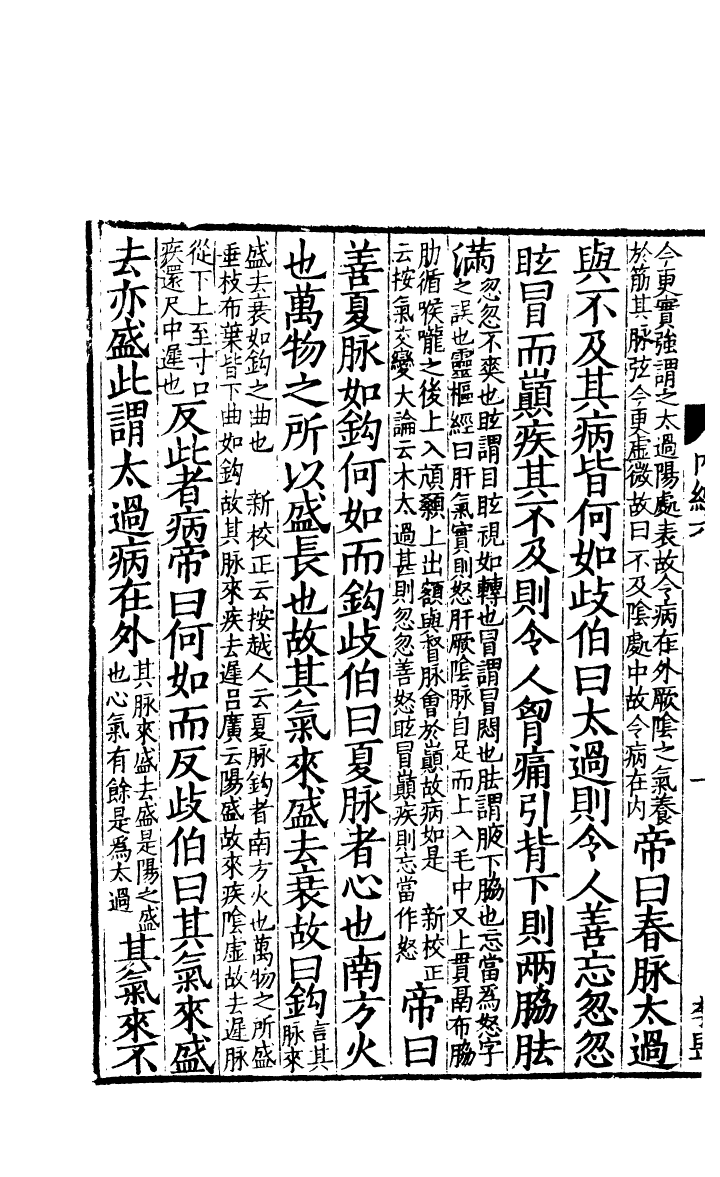 今更實強謂之太過陽處表故令病在外厥陰之氣養
於筋其脉弦今更虛微故曰不及陰處中故令病在内
帝曰春脉太過
與不及其病皆何如歧伯曰太過則令人善忘忽忽
眩冒而巔疾其不及則令人胷痛引背下則兩脇胠
滿
忽忽不爽也眩謂目眩視如轉也冒謂冒悶也胠謂腋下脇也忘當爲怒字
之誤也靈樞經曰肝氣實則怒肝厥陰脉自足而上入毛中又上貫鬲布脇
肋循喉嚨之後上入頏顙上出額與督脉會於巔故病如是 新校正
云按氣交變大論云木太過甚則忽忽善怒眩冒巔疾則忘當作怒
帝曰
善夏脉如鈎何如而鈎歧伯曰夏脉者心也南方火
也萬物之所以盛長也故其氣來盛去衰故曰鈎
言其
脉來
盛去衰如鈎之曲也 新校正云按越人云夏脉鈎者南方火也萬物之所盛
垂枝布葉皆下曲如鈎故其脉來疾去遲吕廣云陽盛故來疾陰虛故去遲脉
從下上至寸口
疾還尺中遲也
反此者病帝曰何如而反歧伯曰其氣來盛
去亦盛此謂太過病在外
其脉來盛去盛是陽之盛
也心氣有餘是爲太過
其氣來不